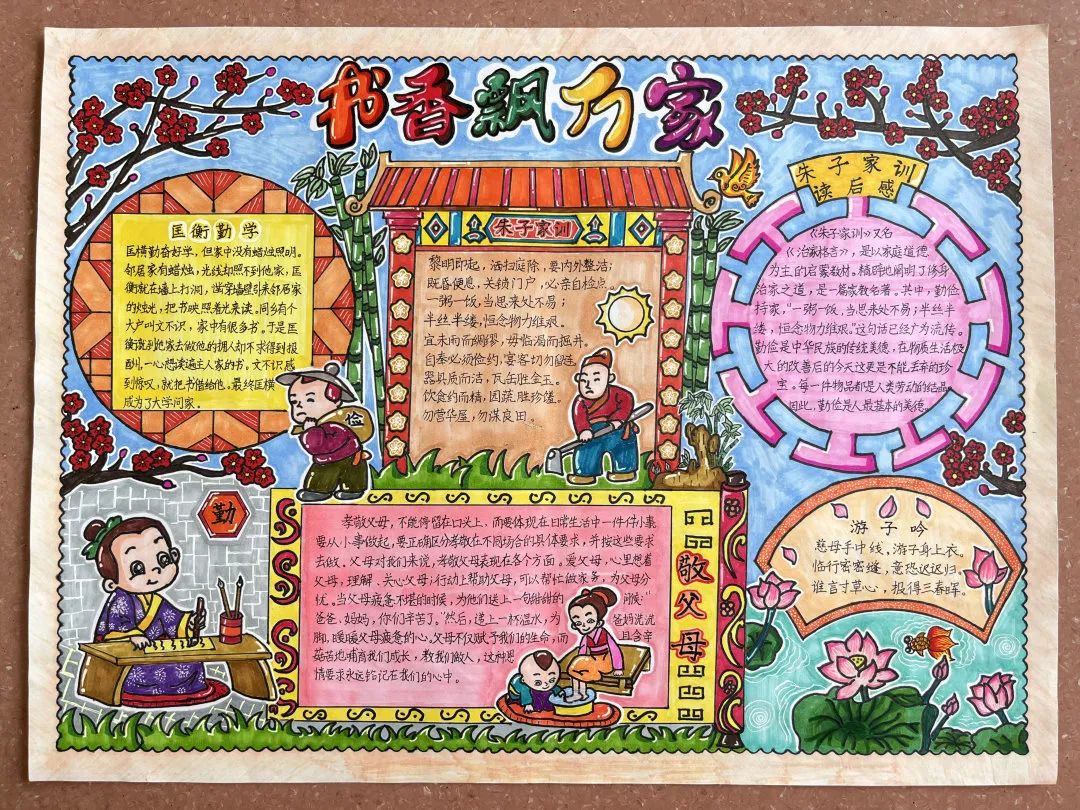 书香飘万家
匡衡勤学
匡横勤奋好学，但家中没有蜡烛照明。
邻居家有蜡烛，光线却照不到他家，匡
衡就在墙上打洞，凿穿墙壁引来邻居家
的烛光，把书映照着光来读。同乡有个
大户叫文不识，家中有很多书。于是匡
衡说到他家去做他的拥人却不求得到报
酬，一心想读遍主人家的书。文不识感
到惊叹，就把书借给他。最终匡横
成为了大学问家。
朱子家训
黎明即起，洒扫庭除，要内外整洁；
既昏便息，关锁门户，必亲自检点。
一粥一饭，当思来处不易；
半丝半缕，恒念物力维艰。
宜未雨而绸缪，毋临渴而掘井。
自奉必须俭约，宴客切勿留连。
器具质而洁，瓦缶胜金玉。
饮食约而精，园蔬胜珍馐。
勿营华屋，勿谋良田。
朱子家训
读后感
《朱子家训》又名
《治家格言》，是以家庭道德
为主的启蒙教材。精辟地阐明了修身
治家之道，是一篇家教名著。其中，勤俭
持家，“一粥一饭，当思来处不易；半丝半
缕，恒念物力维艰。”这句话已经广为流传。
勤俭是中华民族的传统美德，在物质生活极
大的改善后的今天这更是不能丢弃的珍
宝。每一件物品都是人类劳动的结晶
因此，勤俭是人最基本的美德。
俭
勤
孝敬父母，不能停留在口头上，而要体现在日常生活中一件件小事
要从小事做起，要正确区分孝敬在不同场合的具体要求，并按这些要求
去做。父母对我们来说，孝敬父母表现在各个方面。爱父母，心里想着
父母，理解、关心父母；行动上帮助父母，可以帮忙做家务，为父母分
忧。当父母疲惫不堪的时候，为他们送上一句甜甜的问候：“
爸爸、妈妈，你们辛苦了。”然后，递上一杯温水，为爸妈洗洗
脚，暖暖父母疲惫的心。父母不仅赋予我们的生命，而且含辛
茹苦地哺育我们成长，教我们做人，这种恩
情要求永远铭记在我们的心中。
敬父母
游子吟
慈母手中线，游子身上衣。
临行密密缝，意恐迟迟归。
谁言寸草心，报得三春晖。